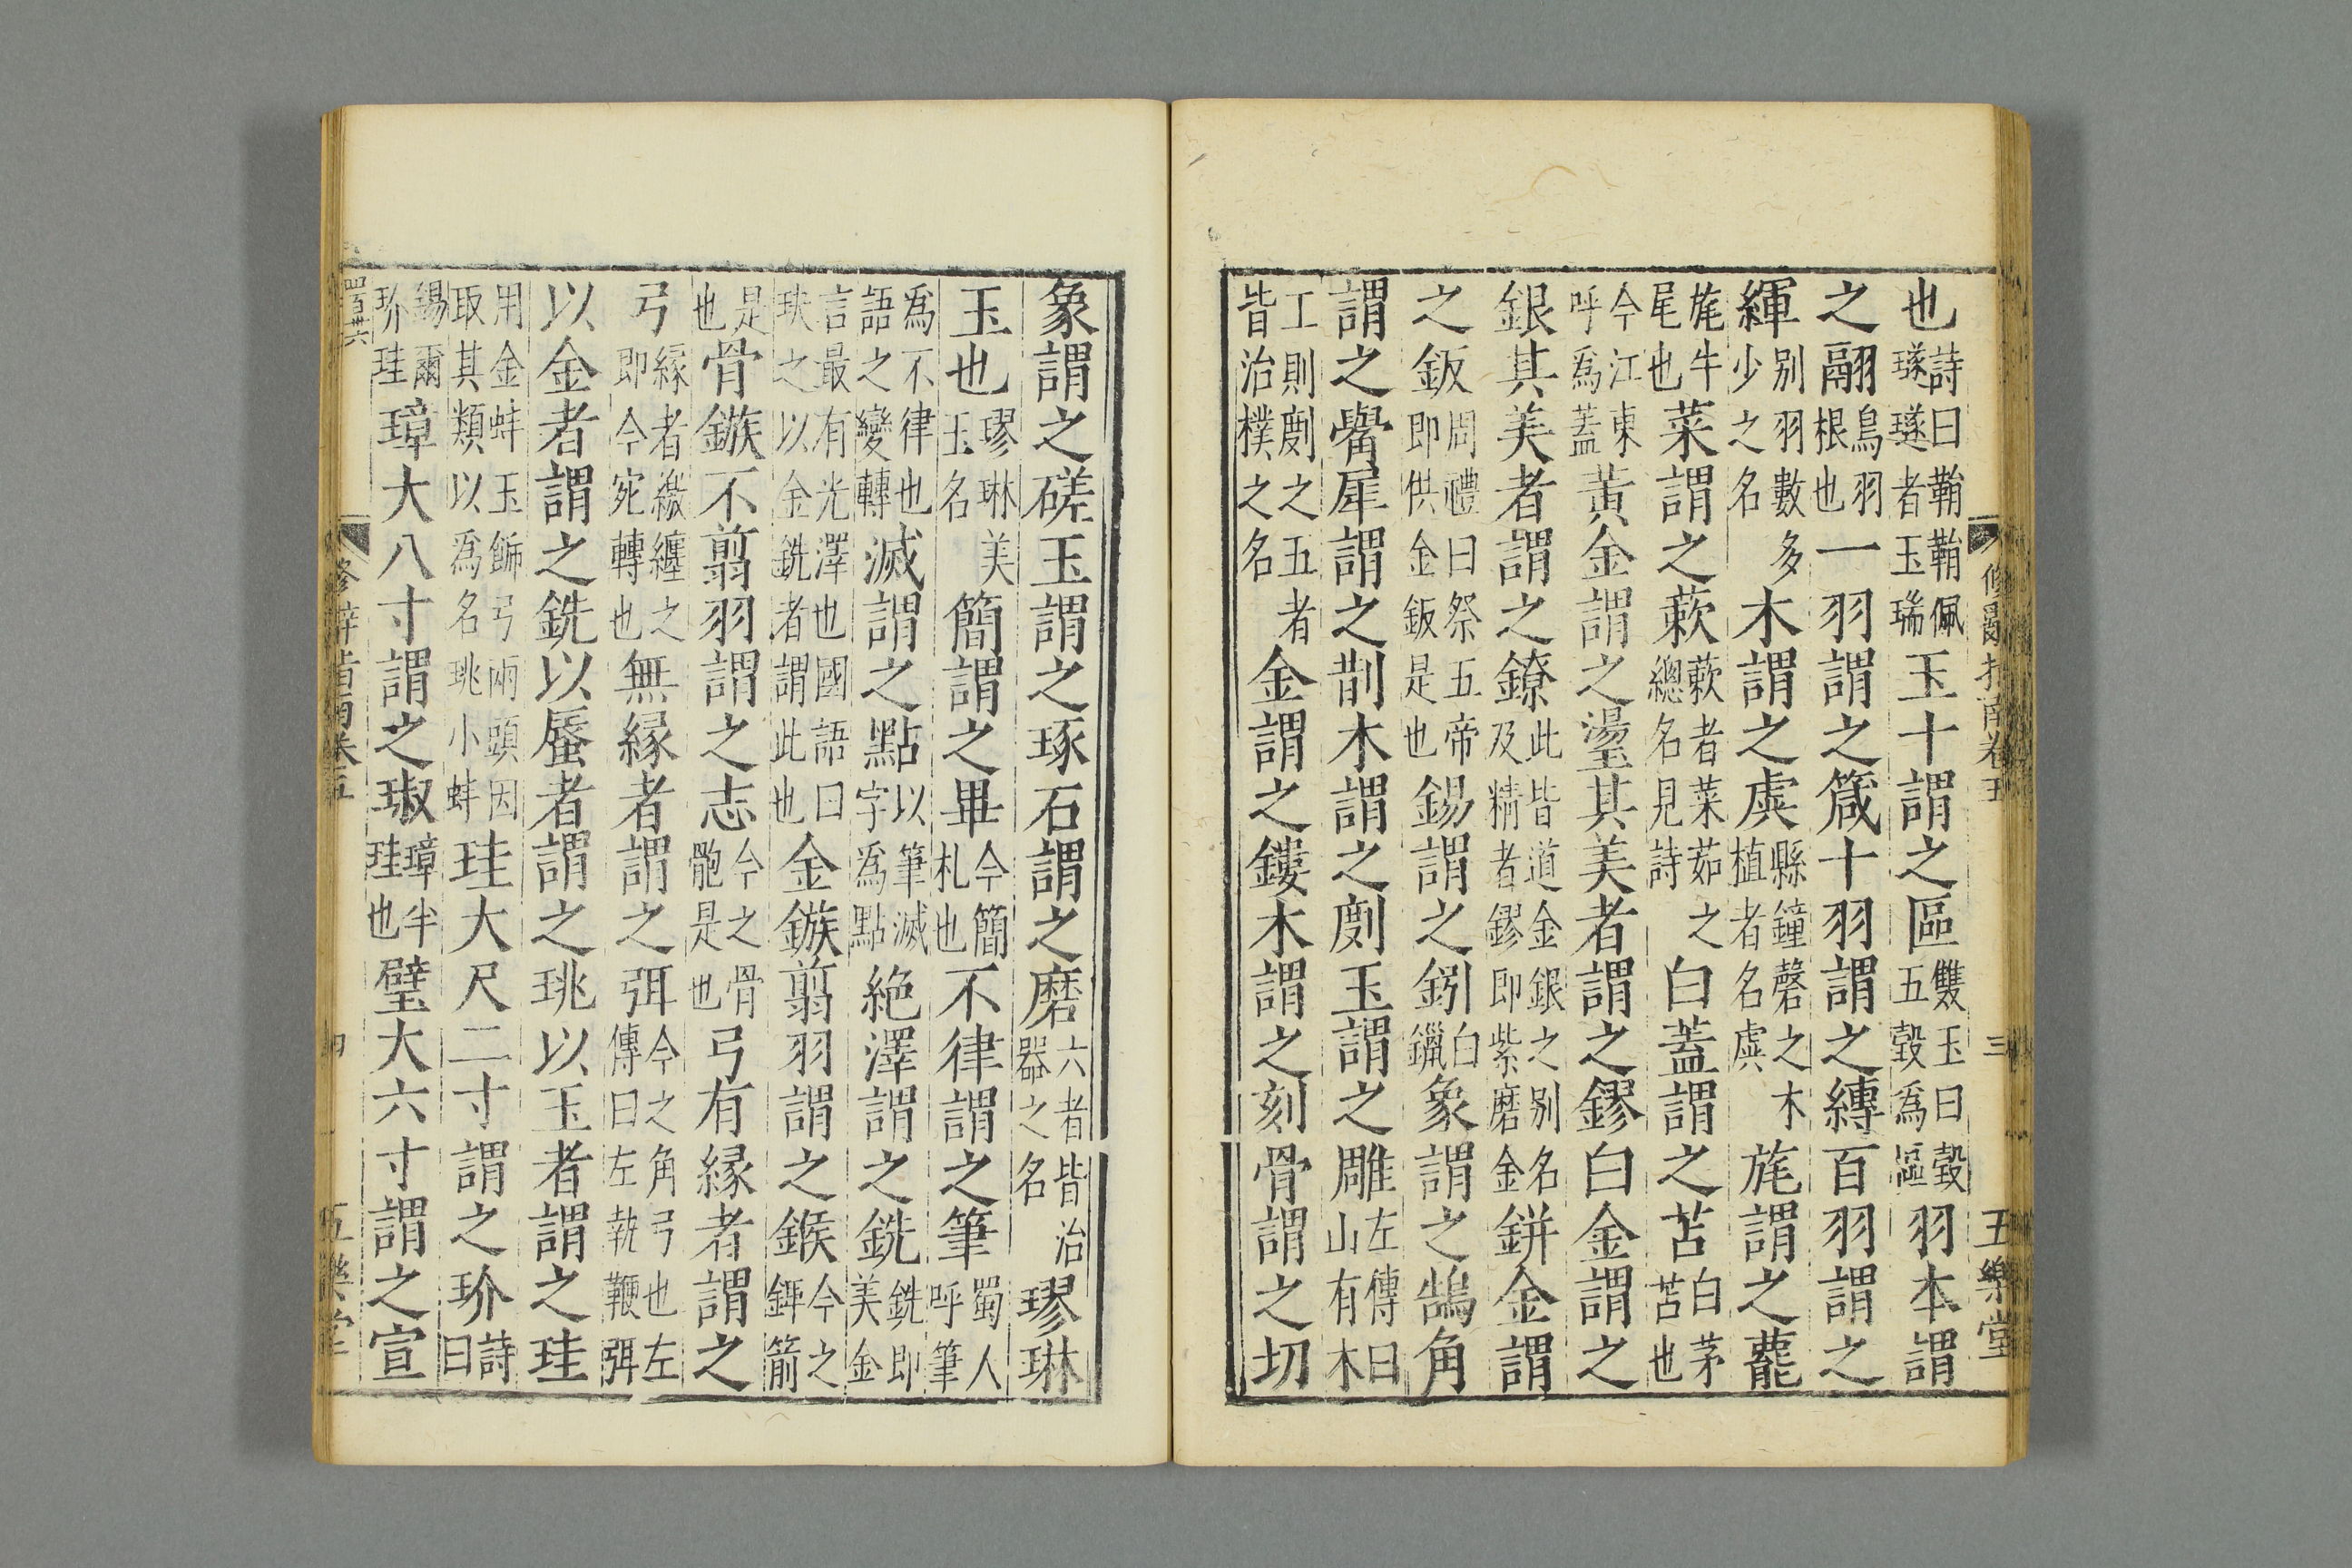 修辭指南卷五 三 五樂堂
也詩曰鞙鞙佩璲璲者玉瑞玉十謂之區雙玉曰瑴五瑴爲區羽本謂
之翮鳥羽根也一羽謂之箴十羽謂之縳百羽謂之
緷别羽數多少之名木謂之虡縣鐘磬之木植者名虡旄謂之藣
旄牛尾也菜謂之蔌蔌者菜茹之總名見詩白蓋謂之苫白茅苫也
今江東呼爲蓋黃金謂之璗其美者謂之鏐白金謂之
銀其美者謂之鐐此皆道金銀之别名及精者鏐即紫磨金鉼金謂
之鈑周禮曰祭五帝即供金鈑是也錫謂之鈏白鑞象謂之鵠角
謂之觷犀謂之剒木謂之剫玉謂之雕左傳曰山有木
工則剫之五者皆治樸之名金謂之鏤木謂之刻骨謂之切
象謂之磋玉謂之琢石謂之磨六者皆治器之名璆琳
玉也璆琳美玉名簡謂之畢今簡札也不律謂之筆蜀人呼筆
爲不律也語之變轉滅謂之點以筆滅字爲點絶澤謂之銑銑即美金
言最有光澤也國語曰玦之以金銑者謂此也金鏃翦羽謂之鍭今之錍箭
是也骨鏃不翦羽謂之志今之骨骲是也弓有縁者謂之
弓縁者繳纏之即今宛轉也無縁者謂之弭今之角弓也左傳曰左執鞭弭
以金者謂之銑以蜃者謂之珧以玉者謂之珪
用金蚌玉飾弓兩頭因取其類以爲名珧小蚌珪大尺二寸謂之玠詩曰
錫爾玠珪璋大八寸謂之琡璋半珪也璧大六寸謂之宣
修辭指南卷五 四 五樂堂